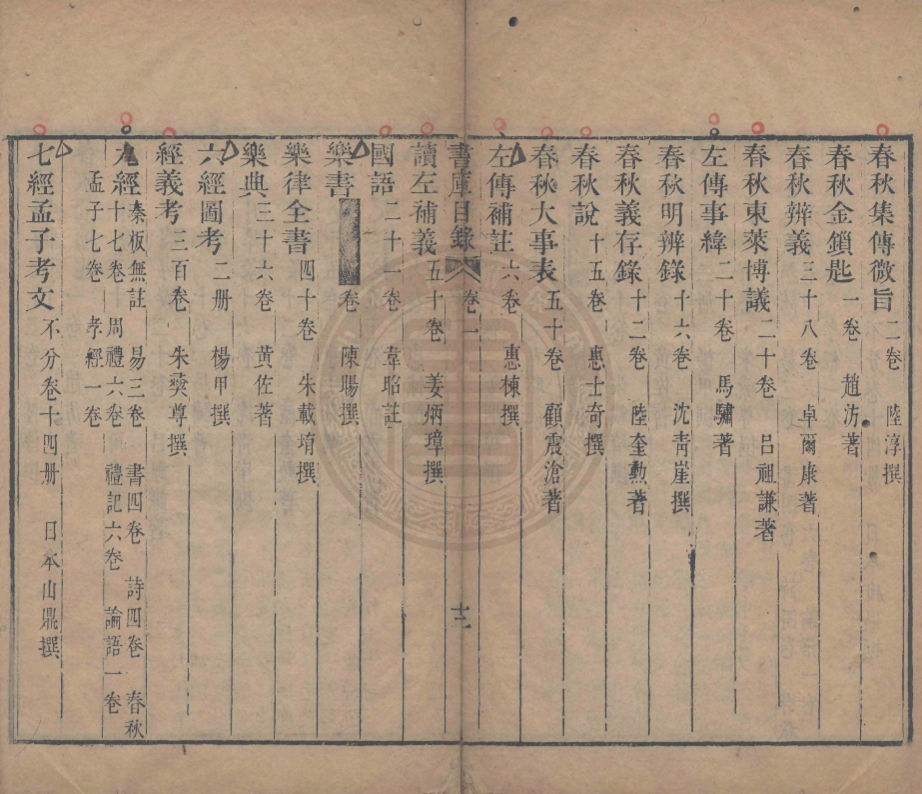 春秋集傳微旨 二卷 陸淳撰
春秋金鎖匙 一卷 趙汸著
春秋辨義 三十八卷 卓爾康著
春秋東萊博議 二十卷 呂祖謙著
左傳事緯 二十卷 馬驌著
春秋明辨錄 十六卷 沈青崖撰
春秋義存錄 十二卷 陸奎勲著
春秋說 十五卷 惠士奇撰
春秋大事表 五十卷 顧震滄著
左傳補註 六卷 惠棟撰
書庫目錄 卷一 十三
讀左補義 五十卷 姜炳璋撰
國語 二十一卷 韋昭註
樂書 卷 陳暘撰
樂律全書 四十卷 朱載堉撰
樂典 三十六卷 黃佐著
六經圖考 二册 楊甲撰
經義考 三百卷 朱彛尊撰
九經 秦板無註 易三卷 書四卷 詩四卷 春秋
十七卷 周禮六卷 禮記六卷 論語一卷
孟子七卷 孝經一卷
七經孟子考文 不分卷十四册 日本山鼎撰